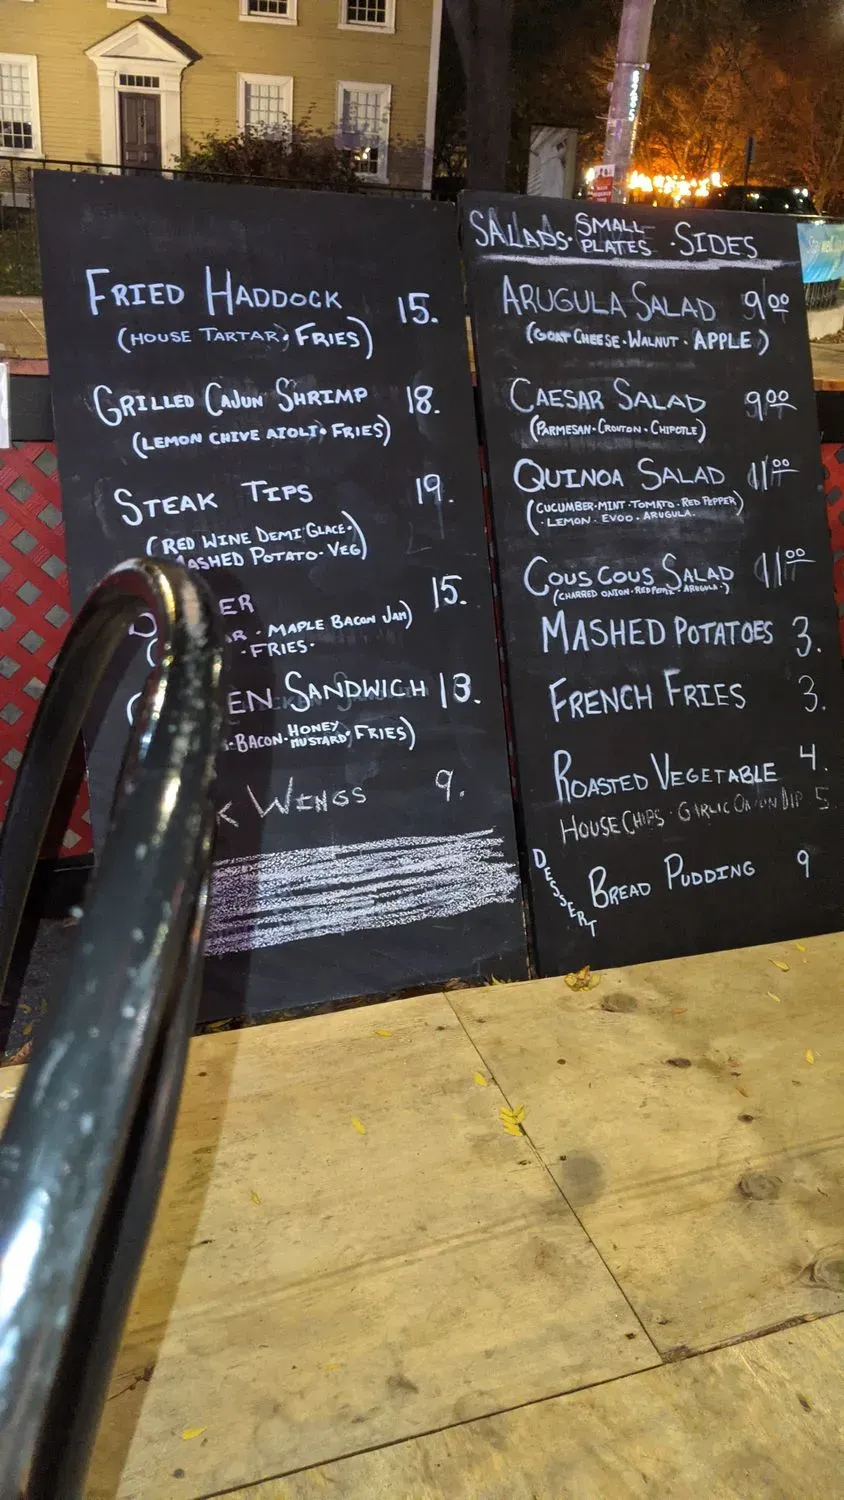 FRIED HADDOCK 15.
(HOUSE TARTAR • FRIES)
GRILLED CAJUN SHRIMP 18.
(LEMON CHIVE AIOLI • FRIES)
STEAK TIPS 19.
(RED WINE DEMI GLACE •
MASHED POTATO · VEG)
ER 15.
AR · MAPLE BACON JAM)
· FRIES ·
EN SANDWICH 13.
· BACON · HONEY MUSTARD · FRIES)
K WINGS 9.
SALADS · SMALL PLATES · SIDES
ARUGULA SALAD 9 00
(GOAT CHEESE · WALNUT · APPLE)
CAESAR SALAD 9 00
(PARMESAN · CROUTON · CHIPOTLE)
QUINOA SALAD 11 00
(CUCUMBER · MINT · TOMATO · RED PEPPER)
· LEMON · EVOO · ARUGULA ·
COUS COUS SALAD 11 00
(CHARRED ONION · RED PEPPER · ARUGULA ·)
MASHED POTATOES 3.
FRENCH FRIES 3.
ROASTED VEGETABLE 4.
HOUSE CHIPS · GARLIC ONION DIP 5
DESSERT
BREAD PUDDING 9